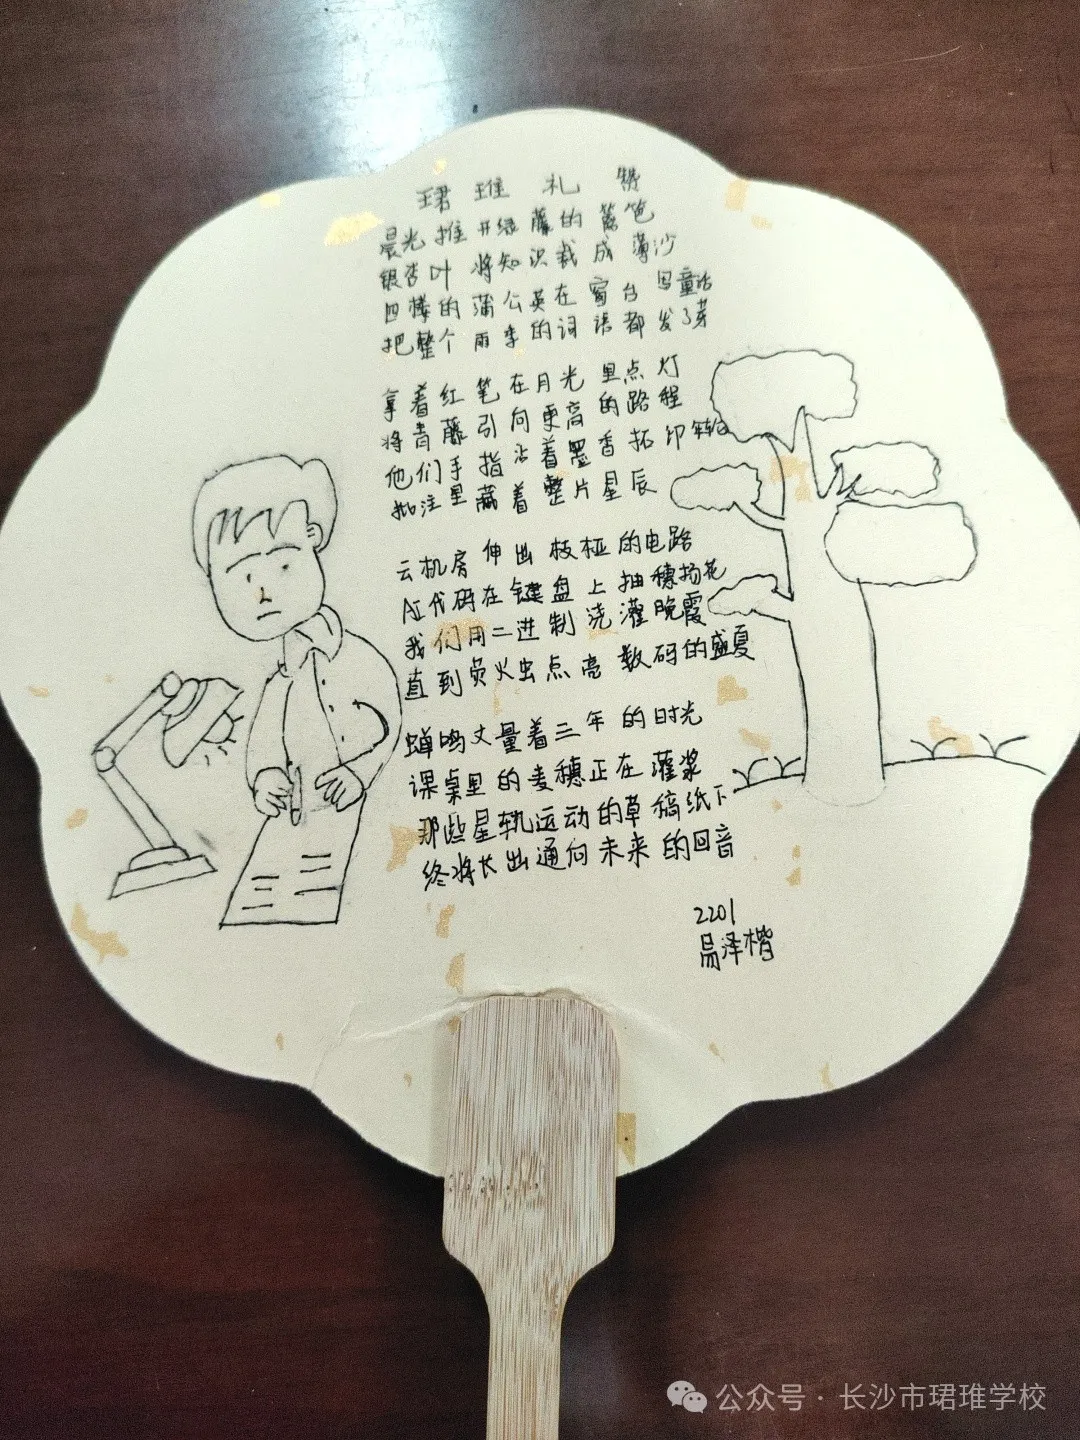 珺琟礼赞
晨光推开绿藤的篱笆
银杏叶将知识裁成薄沙
四楼的蒲公英在窗台写童话
把整个雨季的词语都发了芽
拿着红笔在月光里点灯
将青藤引向更高的路程
他们手指沾着墨香拓印年轮
批注里藏着整片星辰
云机房伸出枝桠的电路
AI代码在键盘上抽穗扬花
我们用二进制浇灌晚霞
直到萤火虫点亮数码的盛夏
蝉鸣丈量着三年的时光
课桌里的麦穗正在灌浆
那些星轨运动的草稿纸下
终将长出通向未来的回音
2201
易泽楷
公众号·长沙市珺琟学校